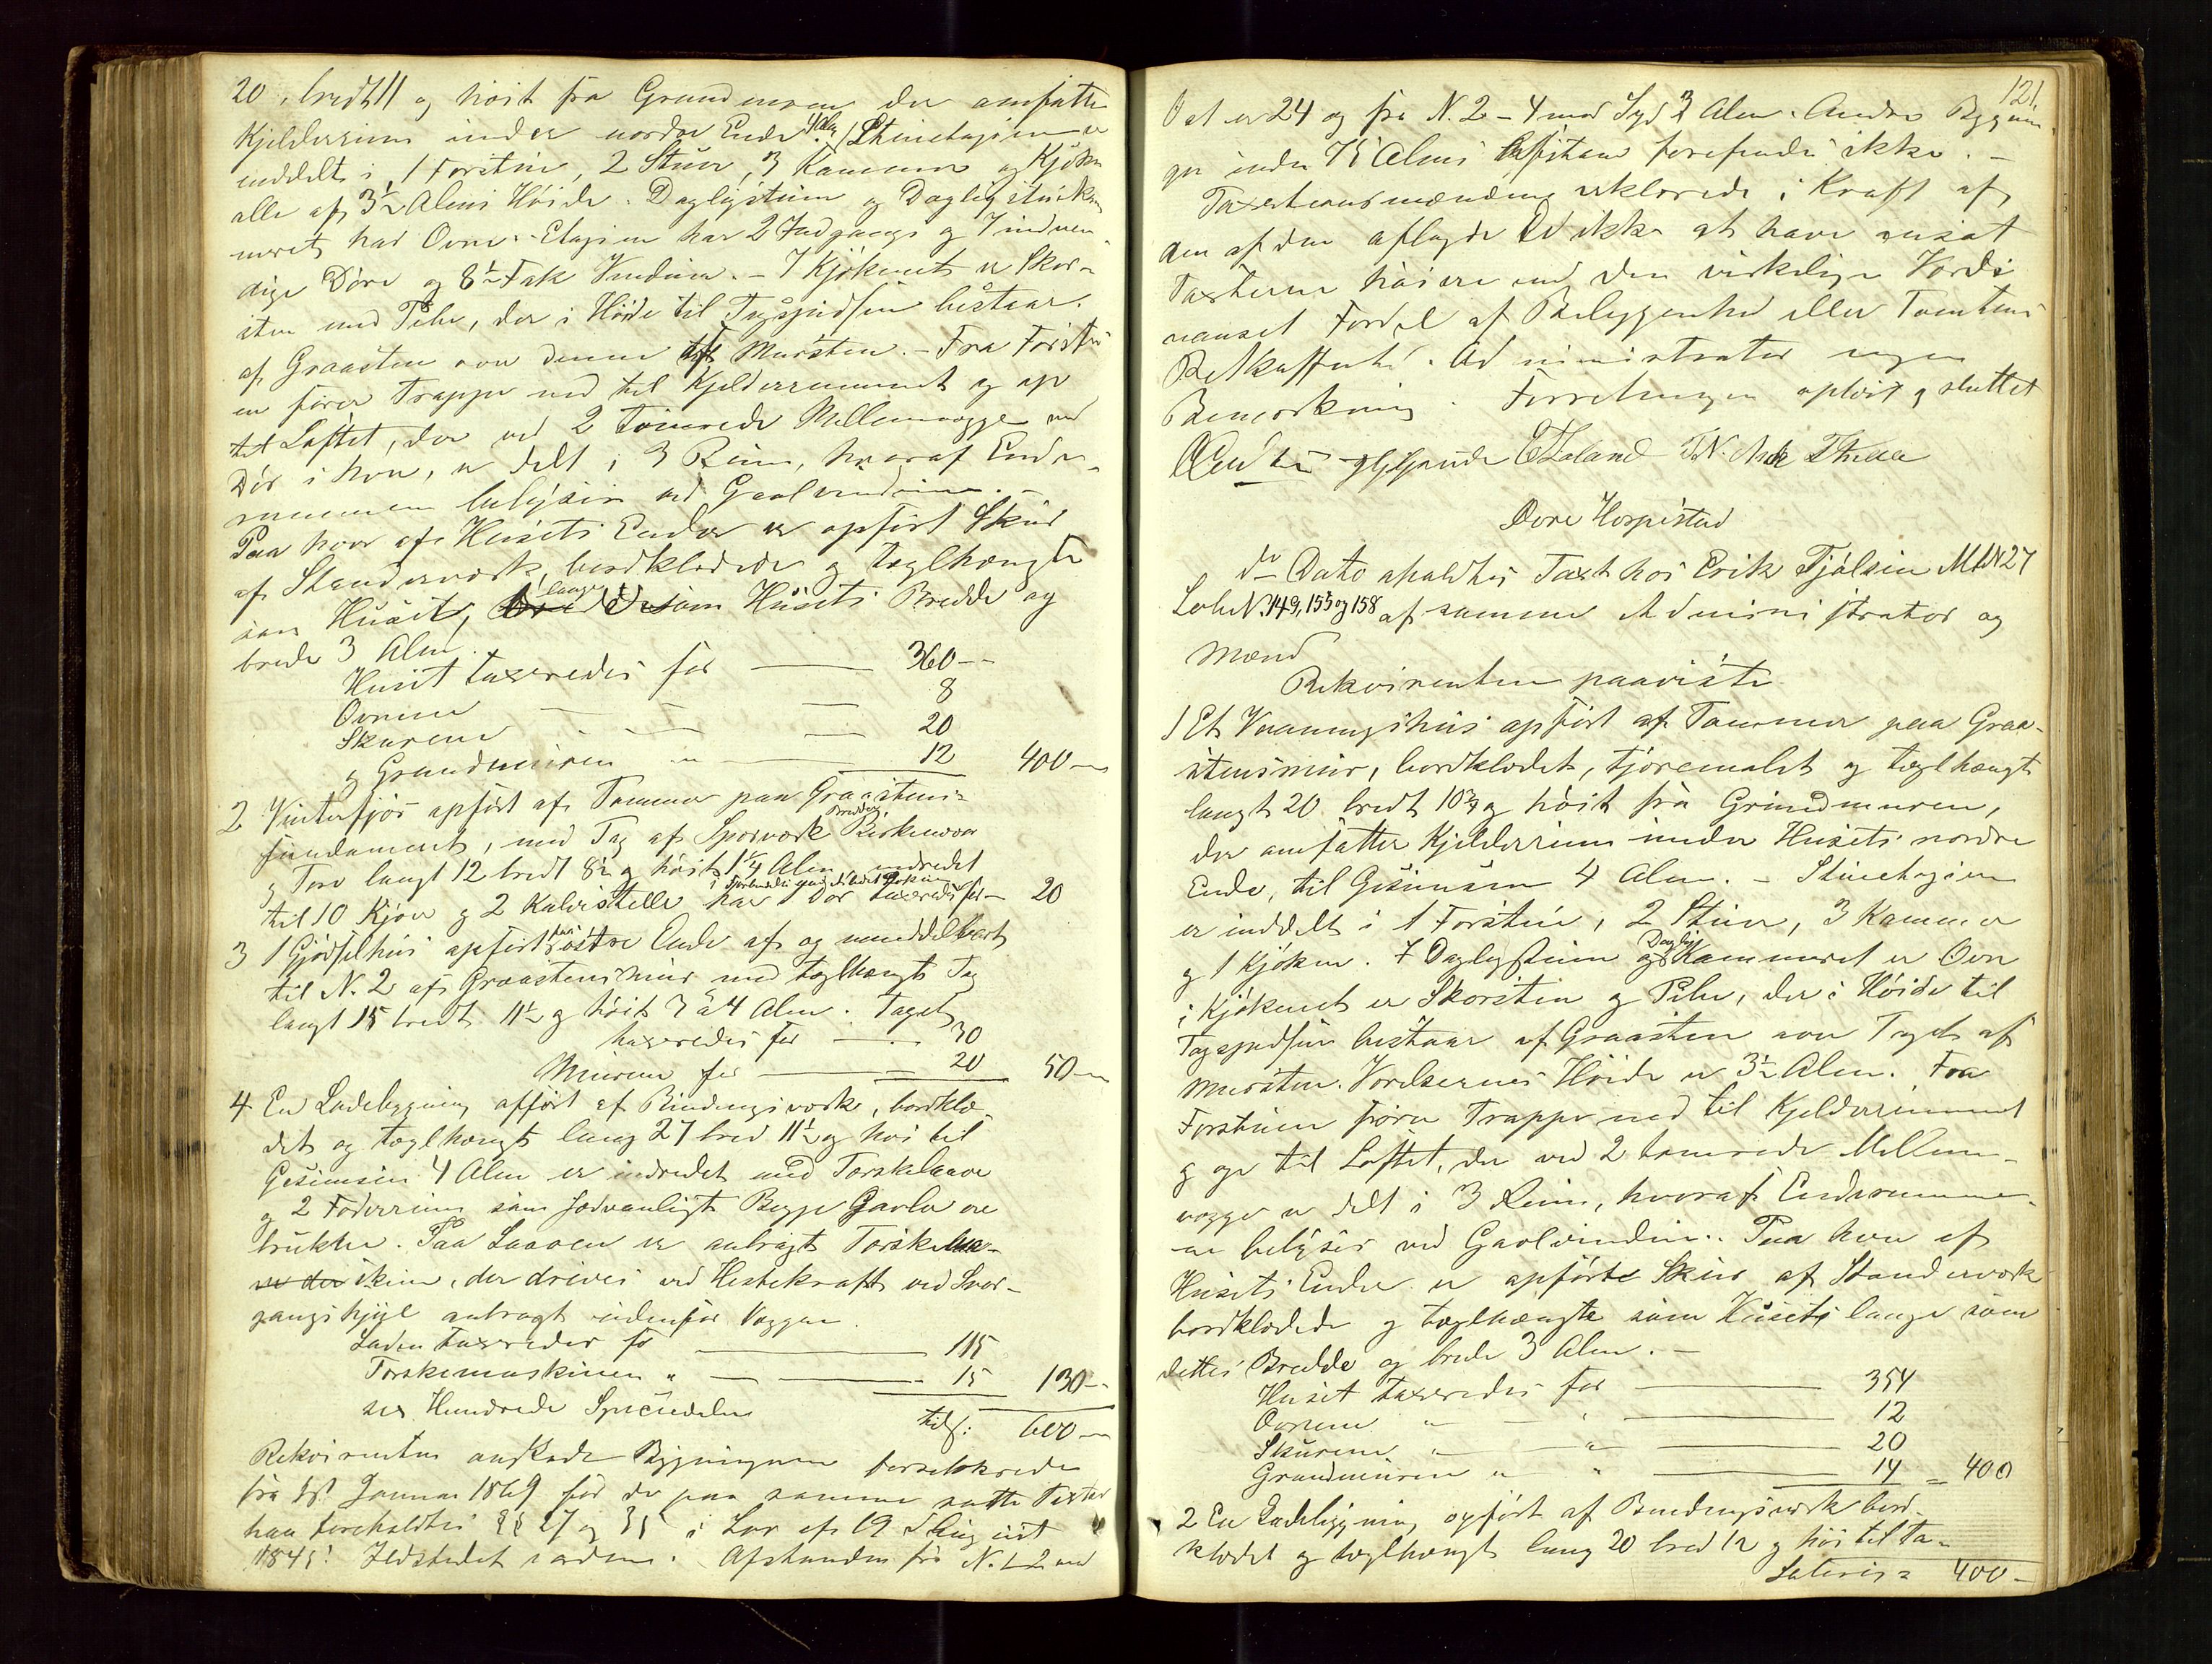 20, bredt 11 og höit fra Grundmuren der omfatter
Kjelderrum under nordre Ende 4 Alen / Stueetagien er
inddelt i 1 Forstue, 2 Stuer, 3 Kammer og Kjøken
alle af 3½ Alens Höide. Dagligstuen og Dagligstuekam-
meret har Ovne. Etagien har 2 Indgangs og 7 indven-
dige Döre og 8½ Fak Vinduer. - I Kjøkenet er Skor-
sten med Pibe, der i Höide til Tagspidsen bestaar
af Graasten over denne af Mursten. - Fra Forstu-
en fører Trappe ned til Kjelderrummet og op
til Loftet, der ved 2 tömrede Mellemvægge med
Dör i hver, er delt i 3 Rum, hvoraf Ende-
rummene belyses ved Gavlvinduer. -
Paa hver af Husets Ender er opført Skur
af Standerværk, bordklædede og teglhængte
som Huset, lange som Husets Bredde og
brede 3 Alen.
Huset taxeredes for 360 --
Ovnene 8
Skurene 20
og Grundmuren 12 400 --
2 Vinterfjøs opført af Tømmer paa Graastens-
fundament, med Tag af Sporværk Bredder Birkenæver
og Torv langt 12 bredt 8½ og höit 1¾ Alen indredet
til 10 Kjør og 2 Kalvestelle har 1 Dør taxeredes for - 20
3 1 Gjødselhus opført paa østre Ende af og umiddelbart
til N. 2 af Graastensmur med teglhængt Tag
langt 15 bredt 11½ og höit 3 a 4 Alen. Taget
taxeredes for 30
Murene for 20 50 --
4 En Ladebygning opført af Bindingsværk, bordklæ-
det og teglhængt lang 27 bred 11½ og høi til
Gesimsen 4 Alen er indredet med Tærskelaave
og 2 Foderrum som sædvanligt Begge Gavler ere
brukte. Paa Laaven er anbragt Tærskema-
skine, der drives ved Hestekraft ved Svin-
gangshjul anbragt udenfor Væggen.
Laden taxeredes for 115
Tærskemaskinen " 15 130 --
sex Hundrede Speciedaler tils: 600 --
Rekvirenten önskede Bygningerne forsikkrede
fra 1st Januar 1869 for de paa samme satte Taxter
han foreholdtes §§ 27 og 35 i Lov af 19 August
1845. Ildstedet i orden. Afstanden fra N. 1-2 ved
121.
Øst er 24 og fra N. 2-4 mod Syd 3 Alen. Andre Bygnin-
ger inden 75 Alens Afstand forefindes ikke. -
Taxationsmændene erklærede i Kraft af
den af dem aflagde Ed ikke at have ansat
Taxterne høiere end den virkelige Værdi
uanset Fordel af Beliggenhed eller Tomtens
Beskaffenhed. Administrator ingen
Bemærkning. Forretningen oplæst og sluttet
Gjerude E Høland
Øvre Hospistad
do Dato afholdtes Taxt hos Erik Fjølsen M.N 27
Løbe N. 149, 153 og 158 af samme Administrator og
Mænd
Rekvirenten paaviste
1 Et Vaaningshus opført af Tømmer paa Graa-
stensmur, bordklædet, tjæremalet og teglhængt
langt 20 bredt 10¾ og höit fra Grundmuren,
der omfatter Kjelderrum under Husets nordre
Ende, til Gesimsen 4 Alen. - Stueetagien
er inddelt i 1 Forstue, 2 Stuer, 3 Kammer
og 1 Kjøken. I Dagligstuen og Daglig Kammeret er Ovn
i Kjøkenet er Skorsten og Pibe, der i Höide til
Tagspidsen bestaar af Graasten over Taget af
Mursten. Værelsernes Höide er 3½ Alen. Fra
Forstuen fører Trappe ned til Kjelderrummet
og op til Loftet, der ved 2 tømrede Mellem-
vægge er delt i 3 Rum, hvoraf Enderumme-
ne belyses ved Gavlvinduer. Paa hver af
Husets Ender er opførte Skur af Standerværk
bordklædede og teglhængte som Husets lange som
dettes Bredde og brede 3 Alen. -
Huset taxeredes for 354
Ovnene " " 12
Skurene " " 20
Grundmuren " " 14 = 400
2 En Ladebygning opført af Bindingsværk bord-
klædet og teglhængt lang 20 bred 12 og höi til Ta-
Lateris = 400 -